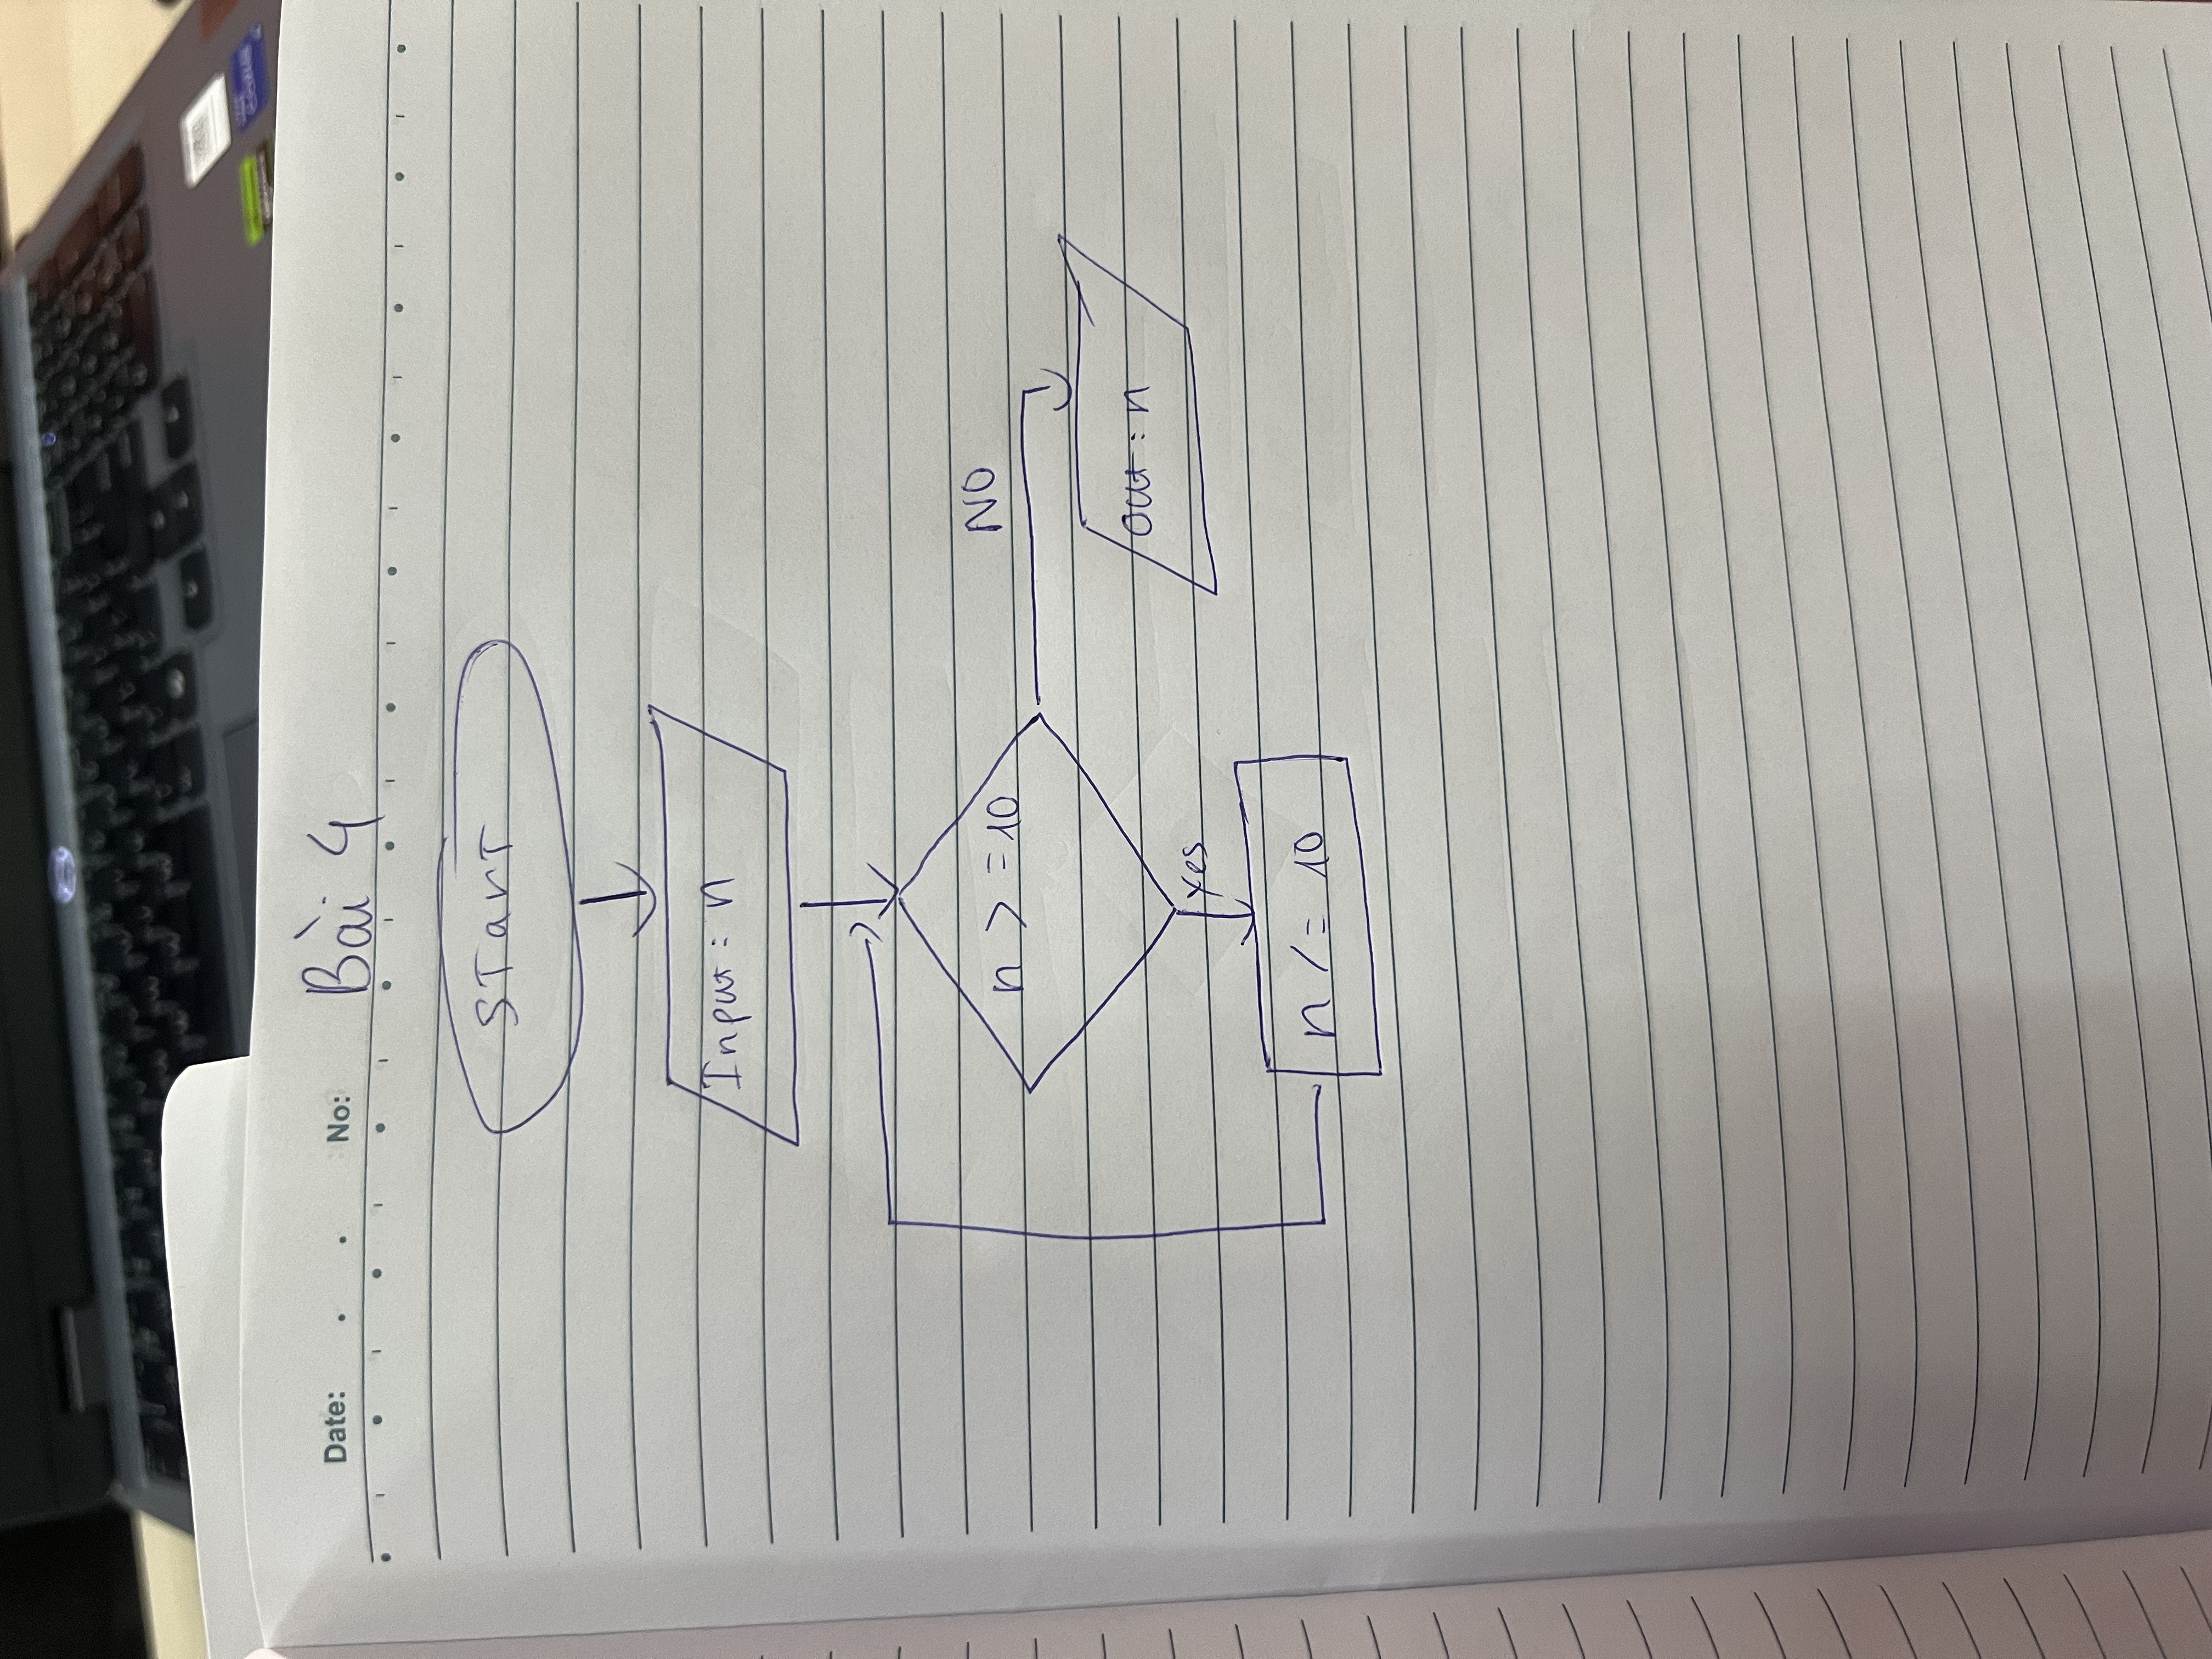 Date: . . No: Bài 4
START
Input: n
n >=10
NO
Out: n
Yes
n /= 10